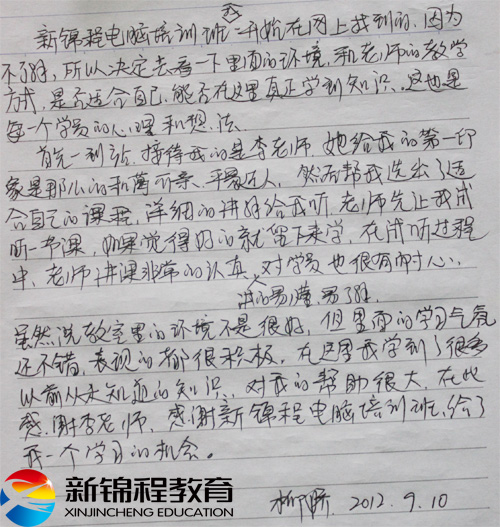 新锦程电脑培训班一开始在网上找到的,因为
不了解,所以决定去看一下里面的环境,和老师的教学
方式,是否适合自己,能否在这里真正学到知识,这也是
每一个学员的心理和想法.
首先一到站,接待我的是李老师,她给我的第一印
象是那么的和蔼可亲,平易近人,然后帮我选出了适
合自己的课程,详细的讲解给我听,老师先让我试
听一节课,如果觉得好的就留下来学,在试听过程
中,老师讲课非常的认真,对学员也很有耐心.
讲的易懂,易了解,
虽然说教室里的环境不是很好,但里面的学习气氛
还不错,表现的都很积极,在这里我学到了很多
以前从未知道的知识,对我的帮助很大,在此
感谢李老师,感谢新锦程电脑培训班,给了
我一个学习的机会。
2012.9.10
新锦程教育
XINJINCHENG EDUCATION